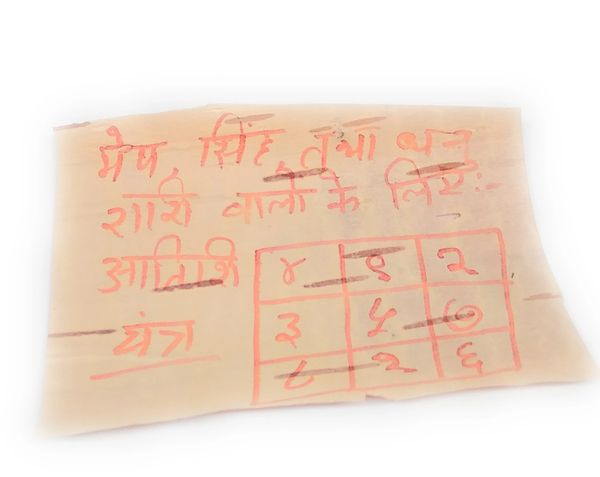 मेष, सिंह, तथा धनु
राशि वालों के लिए:-
आतिशि
यंत्र
४ ९ २
३ ५ ७
८ २ ६